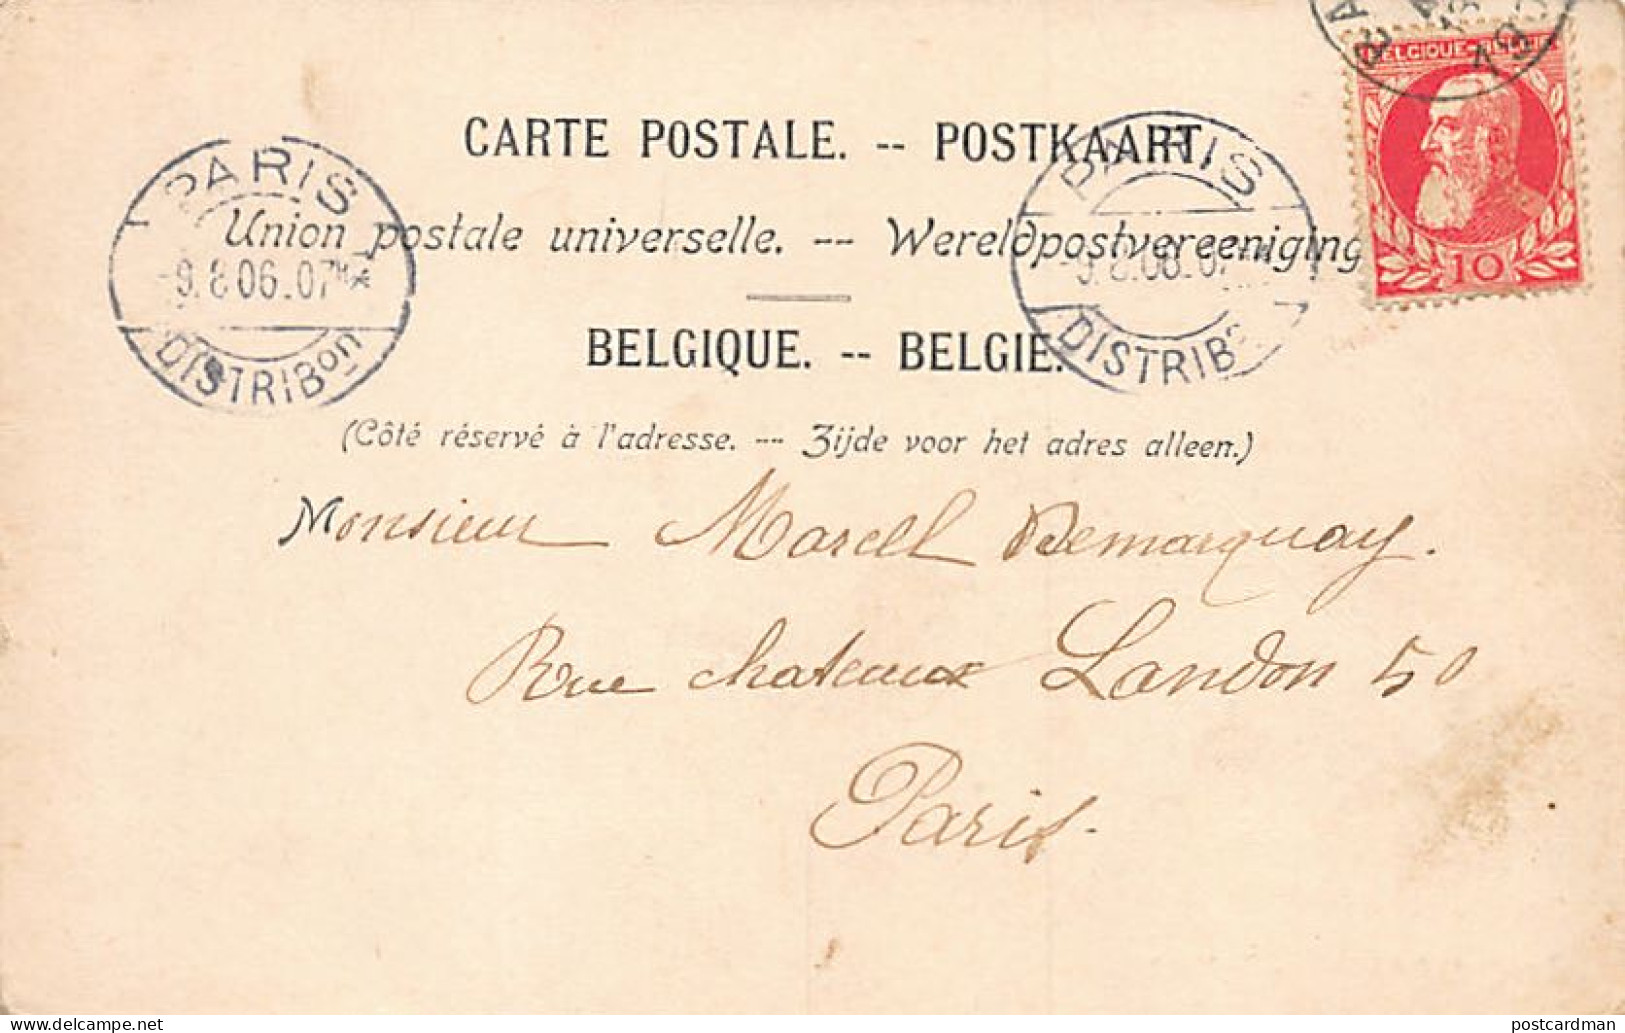 CARTE POSTALE. -- POSTKAART.
Union postale universelle. -- Wereldpostvereeniging
BELGIQUE. -- BELGIE.
(Côté réservé à l'adresse. -- Zijde voor het adres alleen.)
PARIS
9.8 06.07
DISTRIBon
PARIS
DISTRIB
BELGIQUE-BELGIE
10
Monsieur Marcel Demarquay.
Rue chateaux Landon 50
Paris.
postcardman